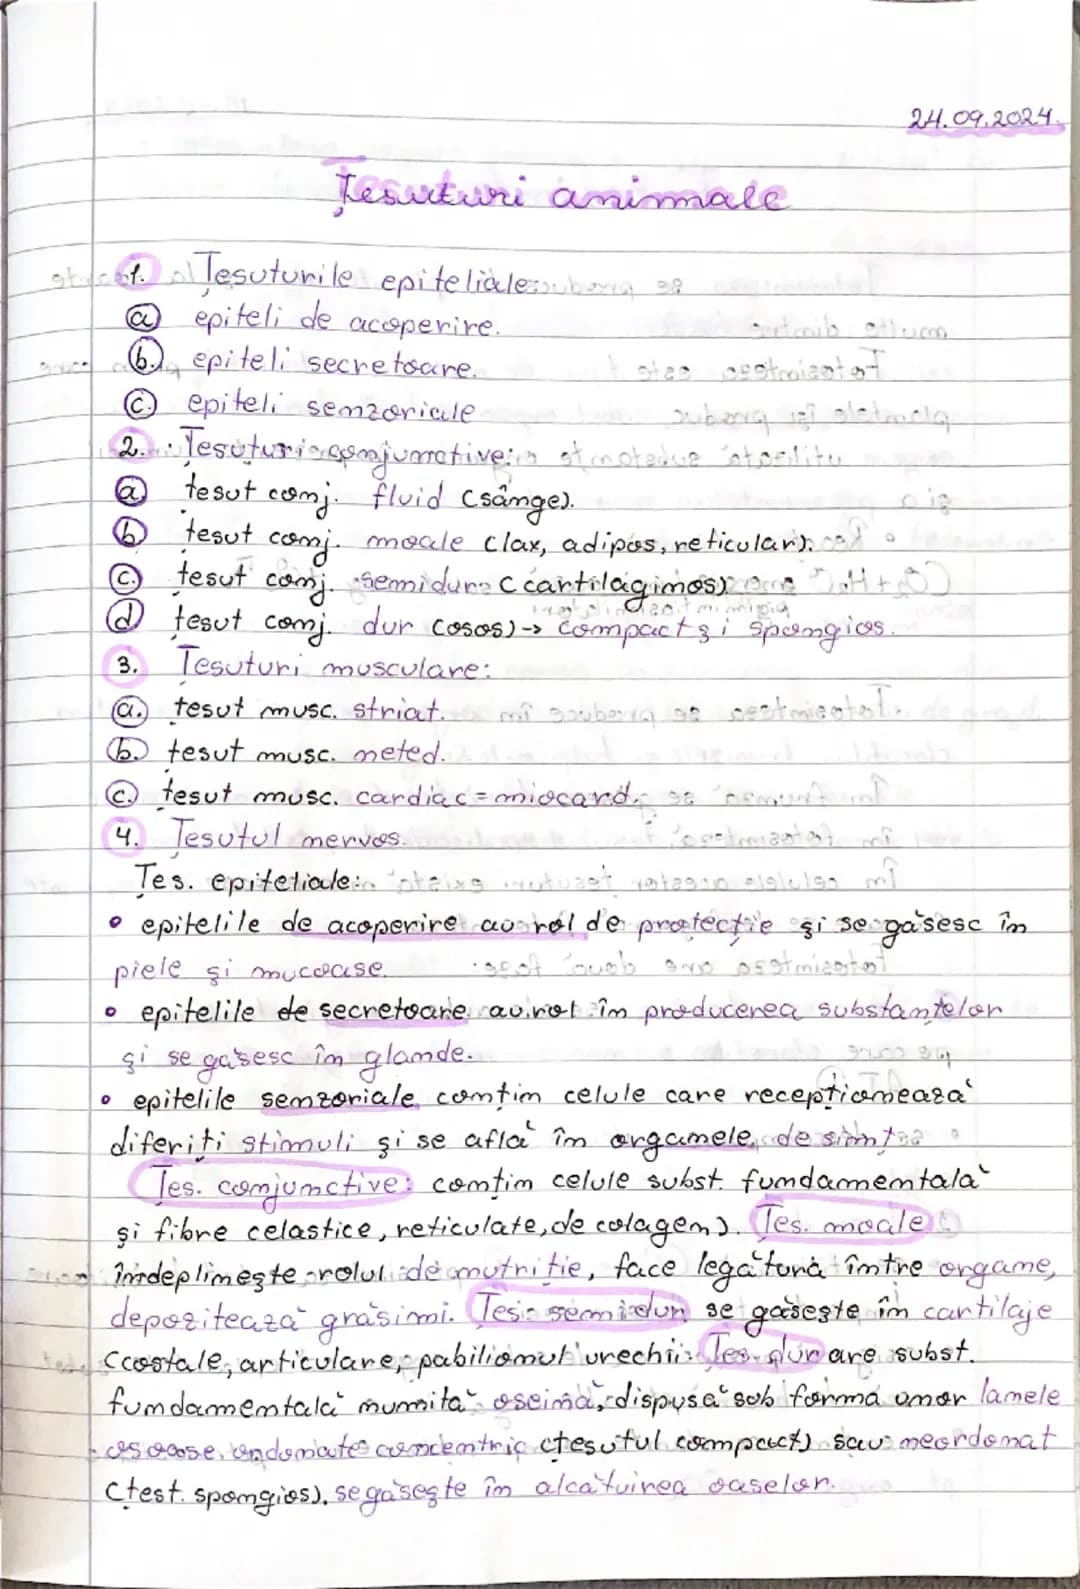 24.09.2024.
Țesuturi animale
1. Țesuturile epiteliale:
a epiteli de acoperire.
b. epiteli secretoare.
c. epiteli senzoriale
2. Țesuturi conjunctive:
a țesut conj. fluid (sânge).
b țesut conj. moale (lax, adipos, reticular).
c. țesut conj. semidur (cartilaginos)
d țesut conj. dur (osos) → compact și spongios.
3. Țesuturi musculare:
a. țesut musc. striat.
b. țesut musc. neted.
c. țesut musc. cardiac = miocard.
4. Țesutul nervos.
Țes. epiteliale:
• epitelile de acoperire au rol de protecție și se găsesc în
piele și mucoase.
• epitelile de secretoare au rol în producerea substanțelor
și se găsesc în glande.
• epitelile senzoriale conțin celule care recepționează
diferiți stimuli și se află în organele de simț
Țes. conjunctive: conțin celule subst. fundamentală
și fibre (elastice, reticulate, de colagen). Țes. moale
îndeplinește rolul de nutriție, face legătura între organe,
depozitează grăsimi. Țes. semidur se găsește în cartilaje
(costale, articulare, pabilionul urechii. Țes. dur are subst.
fundamentală numită oseină, dispusă sub formă unor lamele
osoase, ordonate concentric (țesutul compact) sau neordonat
(țest. spongios). se găsește în alcătuirea oaselor.